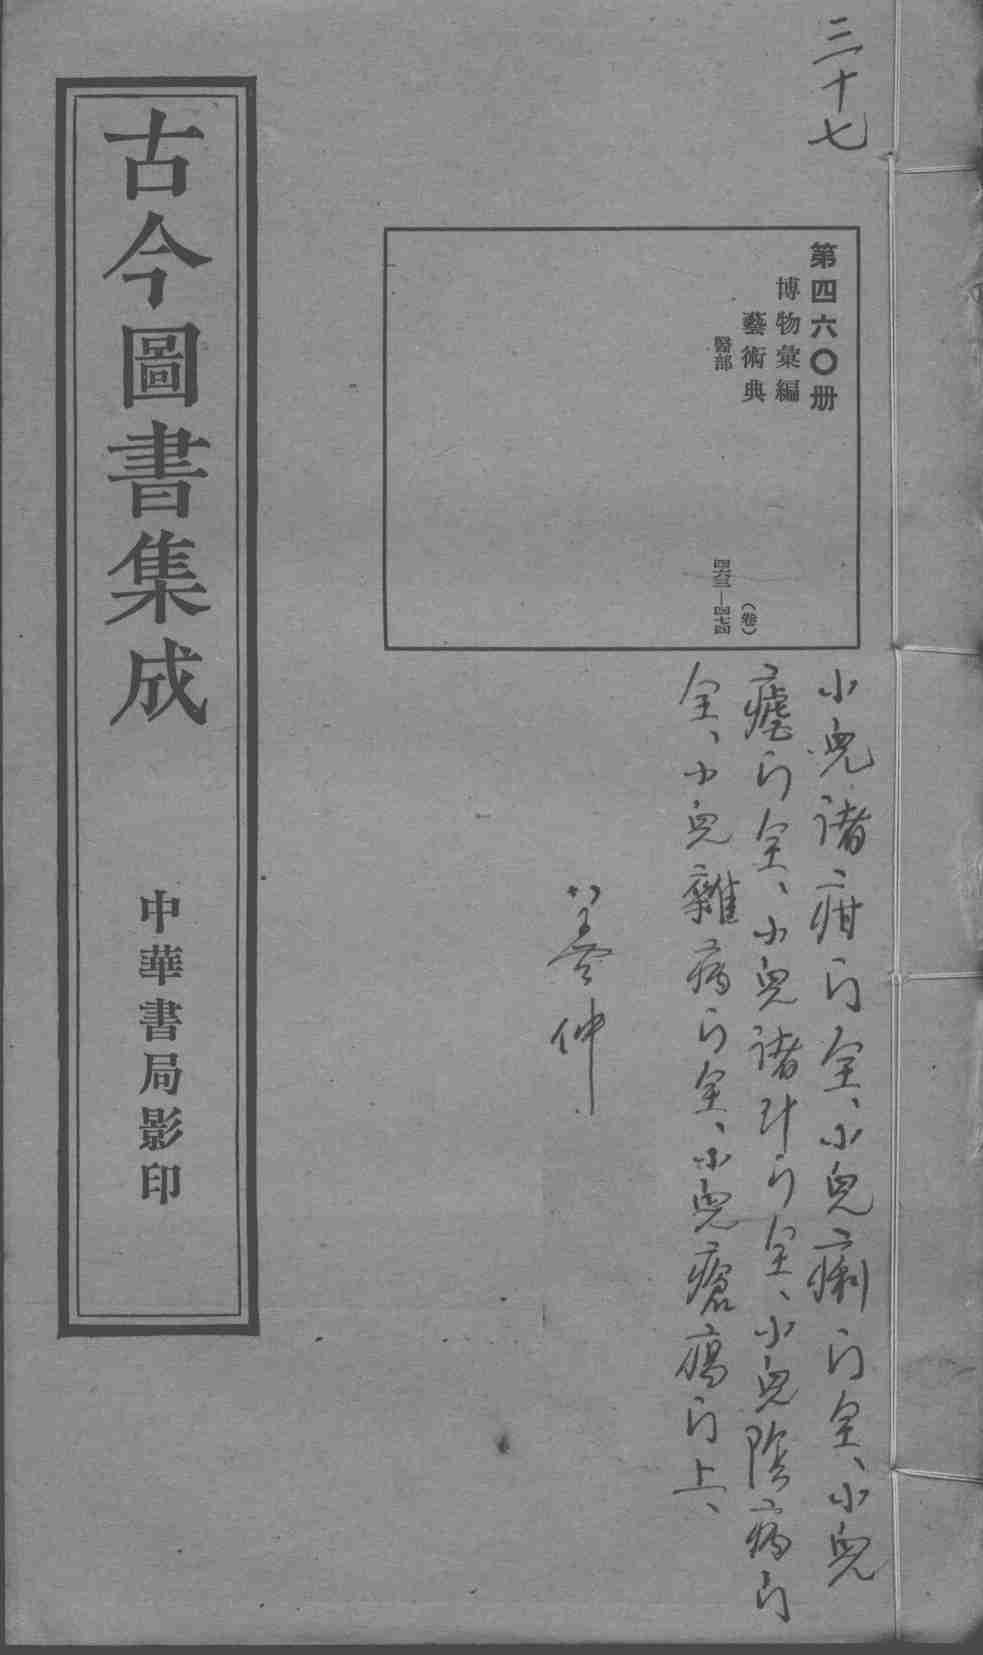 三十七
第四六〇册
博物彙編
藝術典
(卷)
醫部
四六三—四七四
小兒諸疳门全、小兒痢门全、小兒
瘧门全、小兒諸汁门全、小兒陰病门
全、小兒雜病门全、小兒瘡瘍门上、
仲
古今圖書集成
中華書局影印